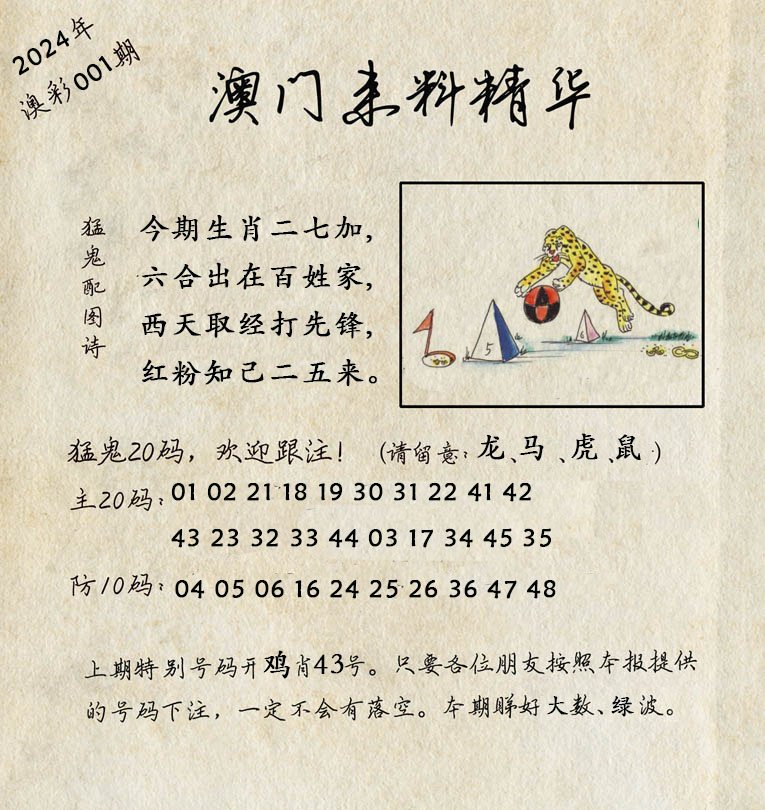 2024年
澳彩001期
澳门来料精华
猛鬼配图诗
今期生肖二七加，
六合出在百姓家，
西天取经打先锋，
红粉知己二五来。
5
6
猛鬼20码，欢迎跟注！（请留意：龙、马、虎、鼠）
主20码：01 02 21 18 19 30 31 22 41 42
43 23 32 33 44 03 17 34 45 35
防10码：04 05 06 16 24 25 26 36 47 48
上期特别号码开鸡肖43号。只要各位朋友按照本报提供
的号码下注，一定不会有落空。本期睇好大数、绿波。